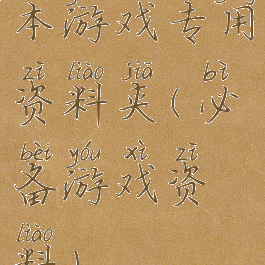 本游戏专用
zī liào jiā bì
资料夹(必
bèi yóu xì zī
备游戏资
liào
料)